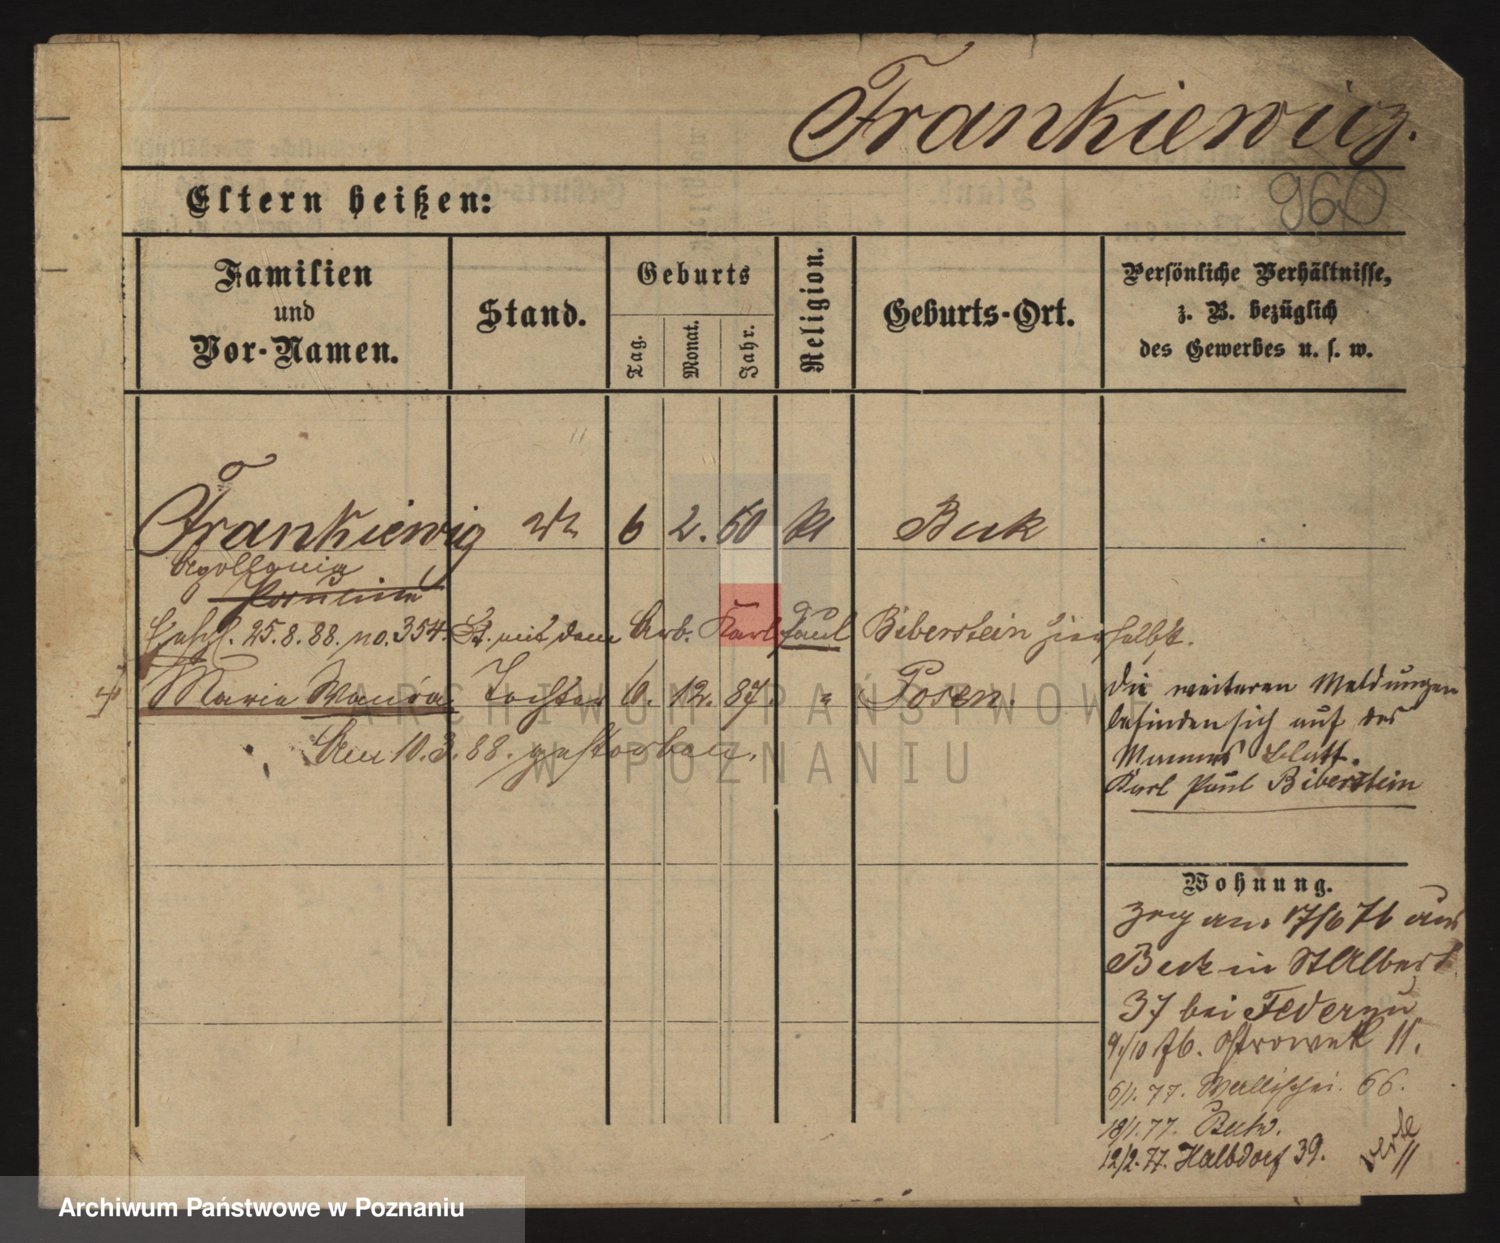 Frankiewicz.
960
Eltern heißen:
Familien und Vor-Namen.
Stand.
Geburts
Tag.
Monat.
Jahr.
Religion.
Geburts-Ort.
Persönliche Verhältnisse, z. B. bezüglich des Gewerbes u. s. w.
Frankiewicz 6 2. 60 kt Buk
Apollonia
Gesch. 25.8.88. no. 354. St. mit dem Arb. Karl Paul Biberstein hierselbst.
Maria Wanda Tochter 6. 12. 87. " Posen.
Am 10.3.88. gestorben.
Die weiteren Meldungen
befinden sich auf des
Mannes Blatt.
Karl Paul Biberstein
Wohnung.
an. 17/6 76 aus
Buk in St Albert
37 bei
9/10 76. Ostrowek 11.
6/1. 77. Wallischei. 66.
18/1. 77. Buk.
12/2. 77. Halbdorf 39.
verte
ARCHIWUM PAŃSTWOWE
W POZNANIU
Archiwum Państwowe w Poznaniu